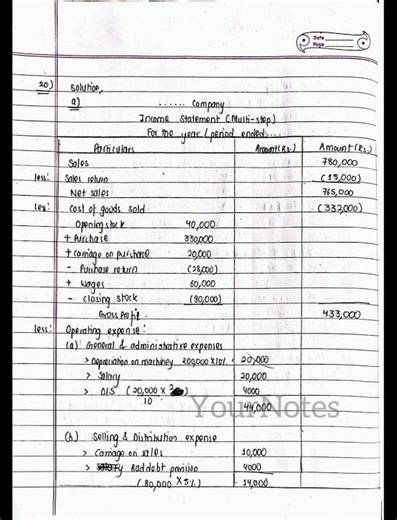 Date
Page
20) solution,
a) ...... Company
Income Statement (Multi-step)
For the year / period ended....
Particulars Amount(Rs.) Amount(Rs.)
Sales 780,000
less: Sales return (15,000)
Net sales 765,000
less: Cost of goods sold (332,000)
Opening stock 40,000
+ Purchase 330,000
+ carriage on purchase 20,000
- Purchase return (28,000)
+ Wages 60,000
- closing stock (90,000)
Gross Profit 433,000
less: Operating expense:
(a) General & administrative expenses
> Depreciation on machinery 200,000 X10% 20,000
> Salary 20,000
> O/S (20,000 X 2) 4000
10
44,000
YourNotes
(b) Selling & Distribution expense
> Carriage on sales 10,000
> Bad debt provision 4000
(80,000 X 5%) 14,000